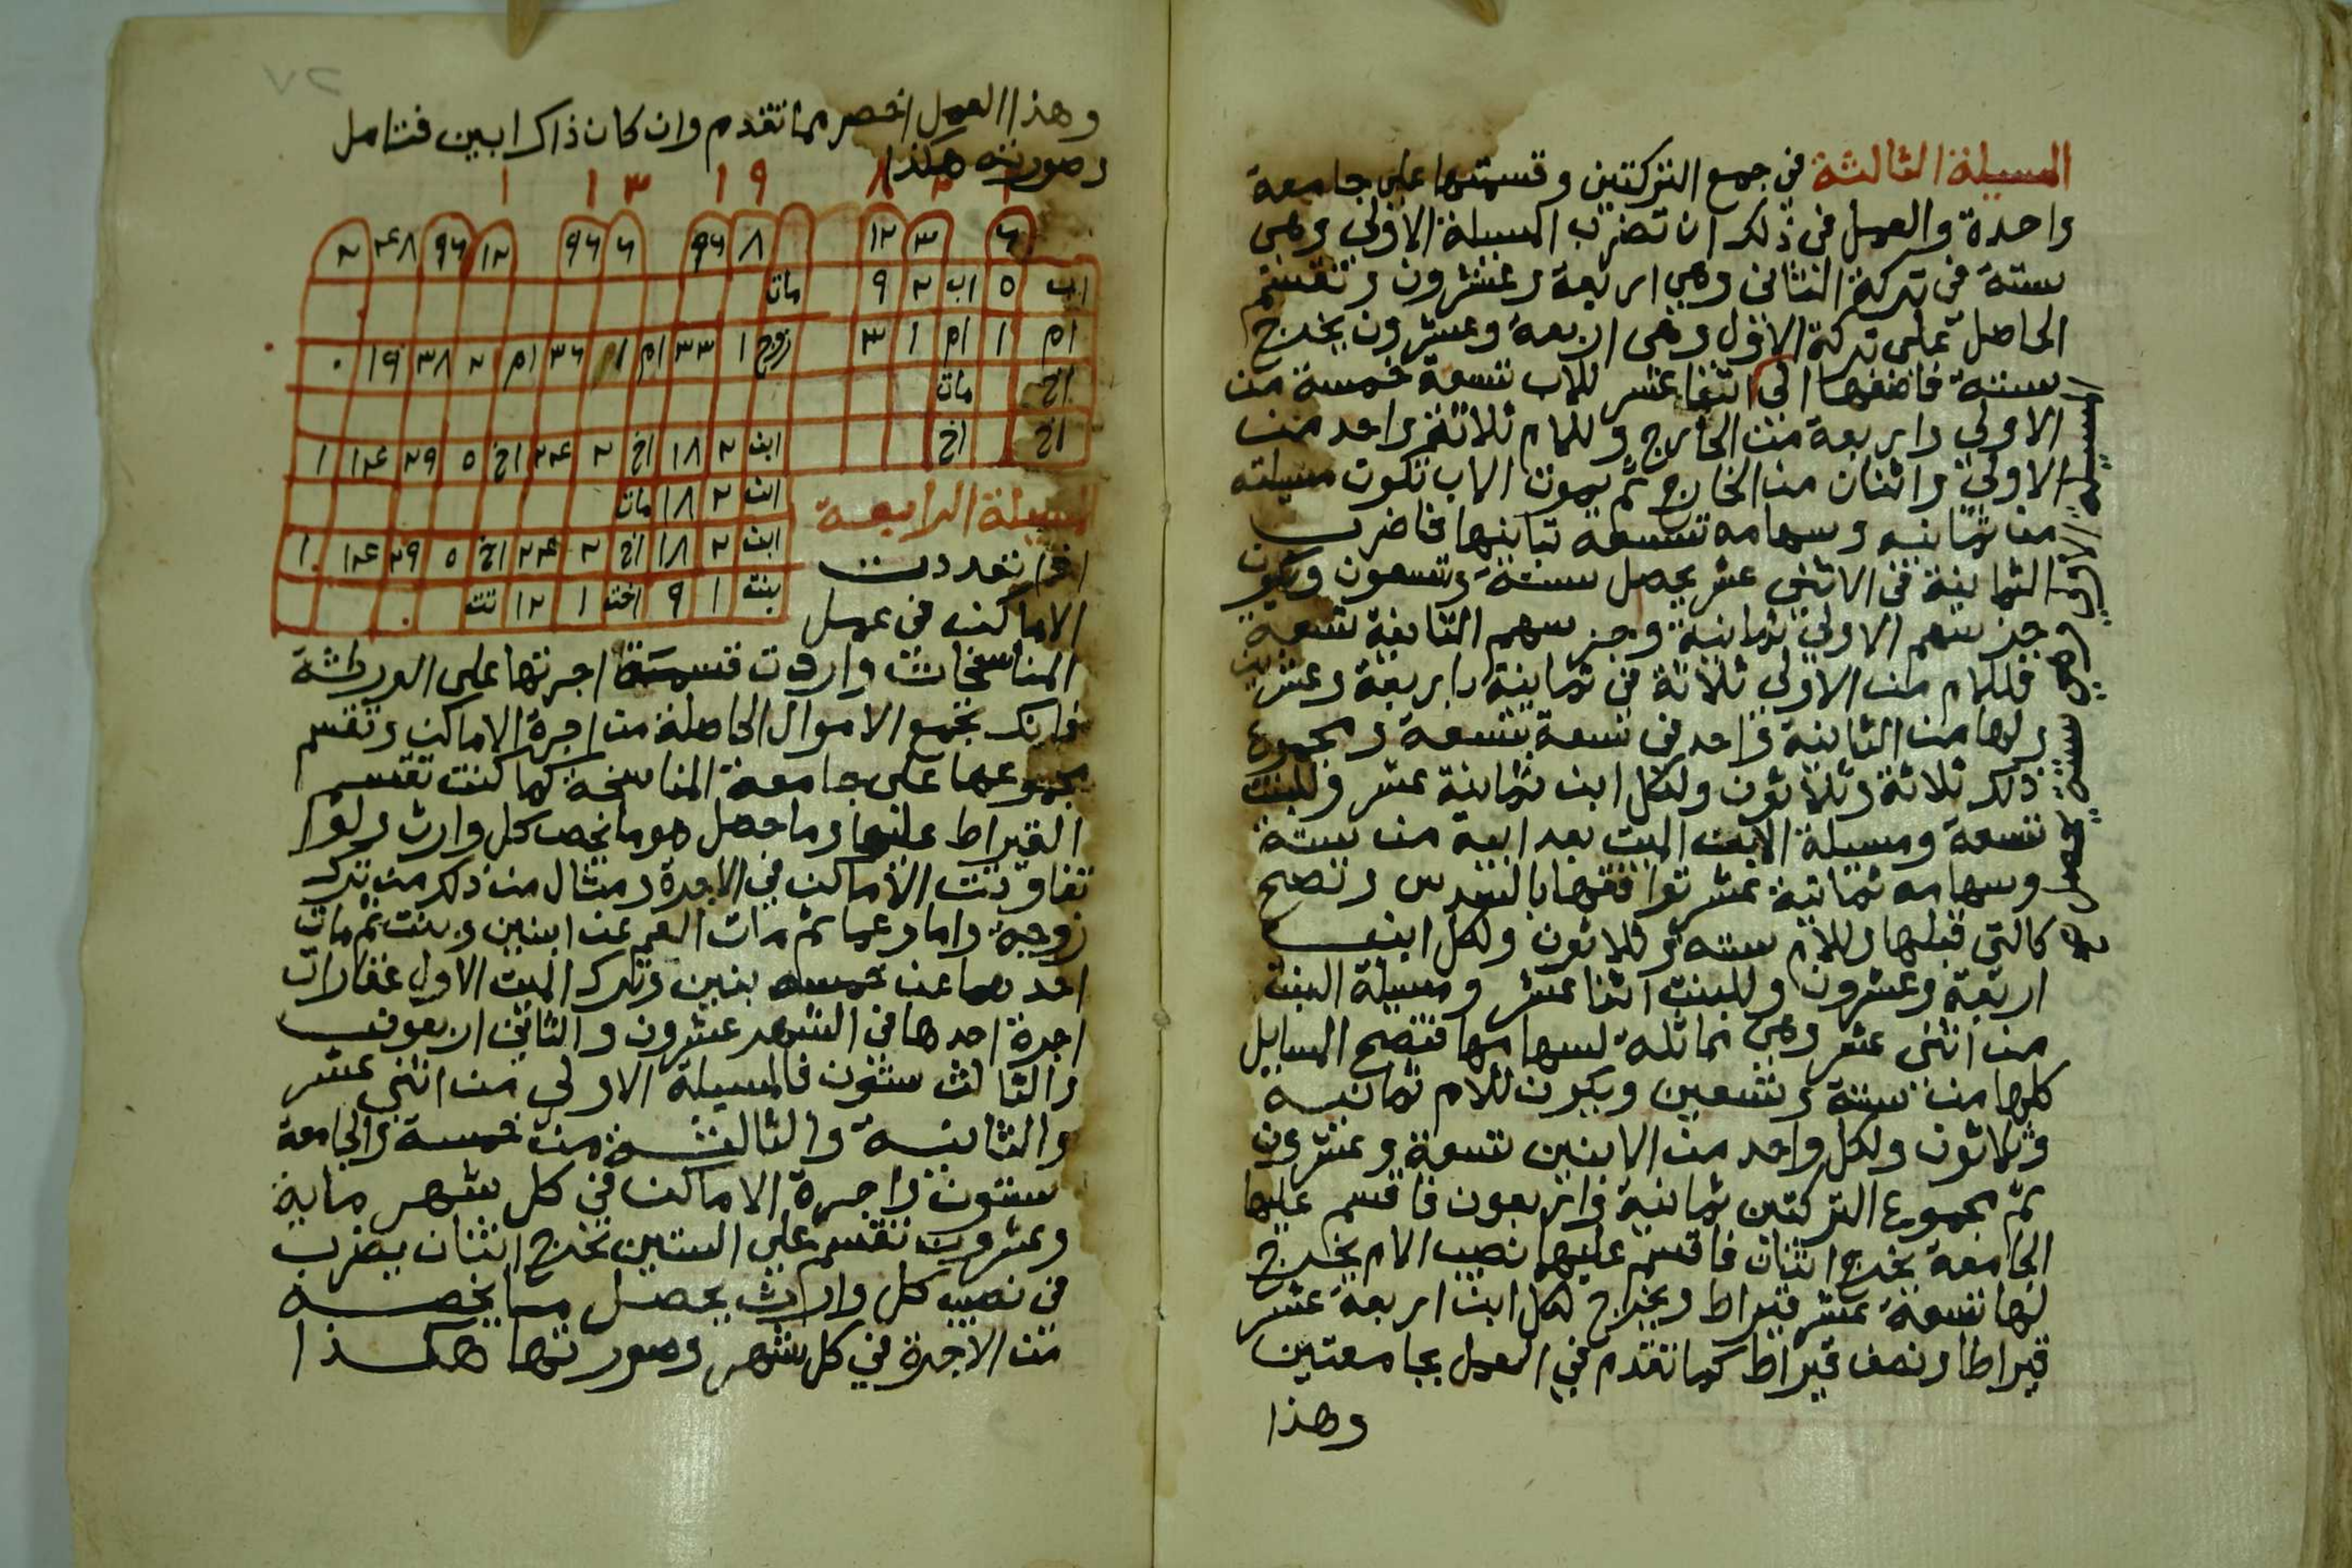 المسيلة الثالثة في جمع التركتين وقسمتها على جامعة
واحدة والعمل في ذلك ان تضرب المسيلة الاولي وهي
ستة في تركة الثاني وهي اربعة وعشرون وتقسم
الحاصل على تركة الاول وهي اربعة وعشرون يخرج
ستة فاضفها الي اثنا عشر للاب تسعة خمسة من
الاولي واربعة من الخارج وللام ثلاثة واحد من
الاولي واثنان من الخارج ثم يموت الاب تكون مسيلته
من ثمانيه وسهامه تسعة تباينها فاضرب
الثمانية في الاثني عشر يحصل ستة وتسعون ويكون
جز سهم الاولي ثمانية وجز سهم الثانية تسعة
فللام من الاولي ثلاثة في ثمانية باربعة وعشرين
ولها من الثانية واحد في تسعة بتسعة ومجموع
ذلك ثلاثة وثلاثون ولكل ابن ثمانية عشر وللبنت
تسعة ومسيلة الابن الميت بعد ابيه من ستة
وسهامه ثمانية عشر توافقها بالسدس وتصح
كالتي قبلها وللام ستة وثلاثون ولكل ابن
اربعة وعشرون وللبنت اثنا عشر ومسيلة البنت
من اثني عشر وهي مماثلة لسهامها فتصح المسايل
كلها من ستة وتسعين ويكون للام ثمانية
وثلاثون ولكل واحد من الابنين تسعة وعشرون
ثم مجموع التركتين ثمانية واربعون فاقسم عليها
الجامعة يخرج اثنان فاقسم عليهما نصيب الام يخرج
لها تسعة عشر قيراط ويخرج لكل ابن اربعة عشر
قيراطا ونصف قيراط كما تقدم في العمل بجامعتين
وهذا
المسيلة الاولي وهي ستة يحصل
وهذا العمل اخصر مما تقدم وان كان ذاك ابين فتامل
وصورته هكذا
١ ٣ ٨ ٩ ١ ٣ ١ ١
٦ ٣ ١٢ ٨ ٩٦ ٦ ٩٦ ١٢ ٩٦ ٤٨ ٢
اب ٥ اب ٢ ٩ مات
ام ١ ام ١ ٣ زوج ١ ٣٣ ام ١ ٣٦ ام ٢ ٣٨ ١٩ ٠
اخ مات
اخ اخ ابن ٢ ١٨ اخ ٢ ٢٤ اخ ٥ ٢٩ ١٤ ١
ابن ٢ ١٨ مات
ابن ٢ ١٨ اخ ٢ ٢٤ اخ ٥ ٢٩ ١٤ ١
بنت ١ ٩ اخت ١ ١٢
المسيلة الرابعة
اذا تعددت
الاماكن في عمل
المناسخات واردت قسمة اجرتها على الورثة
فانك تجمع الاموال الحاصلة من اجرة الاماكن وتقسم
مجموعها على جامعة المناسخة كما كنت تقسم
القيراط عليها وما حصل هو ما يخص كل وارث ولو
تفاوتت الاماكن في الاجرة ومثال من ذلك من ترك
زوجة واما وعما ثم مات العم عن ابنين وبنت ثم مات
احدهما عن خمسه بنين وترك الميت الاول عقارات
اجرة احدها في الشهر عشرون والثاني اربعون
والثالث ستون فالمسيلة الاولي من اثني عشر
والثانية والثالثة من خمسة والجامعة
ستون واجرة الاماكن في كل شهر ماية
وعشرون تقسم على الستين يخرج اثنان يضرب
في نصيب كل وارث يحصل ما يخصه
من الاجرة في كل شهر وصورتها هكذا